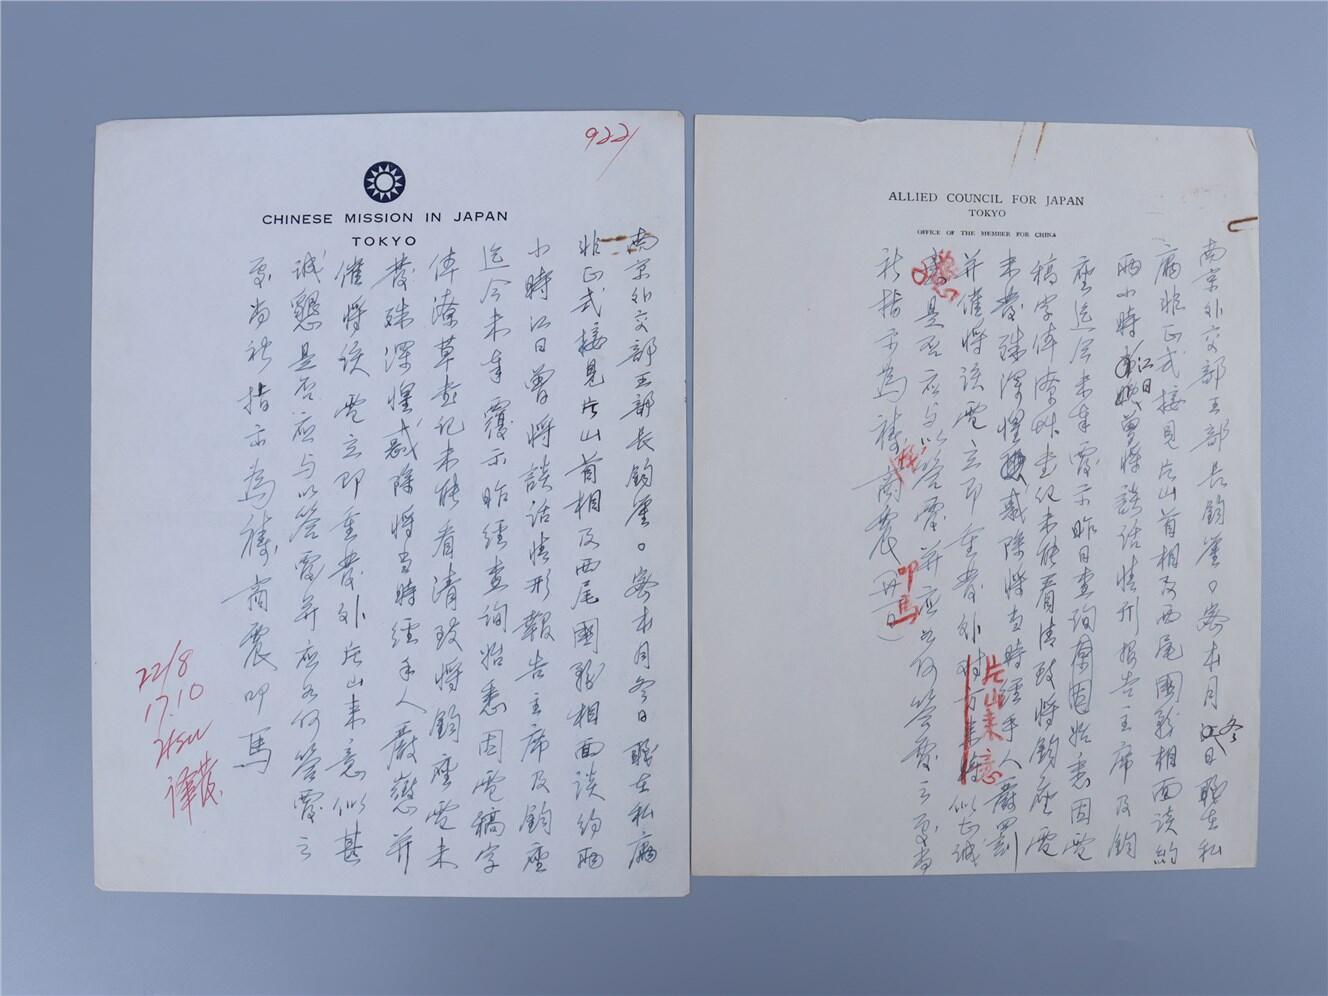 922
CHINESE MISSION IN JAPAN
TOKYO
南京外交部王部長鈞鑒。密本月冬日職在私廨
非正式接見片山首相及西尾國務相面談約兩
小時江日曾將談話情形報告主席及鈞座
迄今未奉覆示昨經查詢始悉因電稿字
體潦草書記未能看清致將鈞座電未
發殊深惶惑除將當時經手人嚴懲并
催將該電立即重發外片山來意似甚
誠懇是否應与以答覆并應如何答覆之
處尚祈指示為禱商震叩馬
22/8
17.10
Hsu
譯發
ALLIED COUNCIL FOR JAPAN
TOKYO
OFFICE OF THE MEMBER FOR CHINA
南京外交部王部長鈞鑒。密本月冬日職在私
廨非正式接見片山首相及西尾國務相面談約
兩小時江日曾將談話情形報告主席及鈞
座迄今未奉覆示昨日查詢原因始悉因電
稿字體潦草書記未能看清致將鈞座電
未發殊深惶惑除將當時經手人嚴罰
并催將該電立即重發外片山來意似甚誠
懇是否應与以答覆并應如何答覆之處尚
祈指示為禱商震叩馬